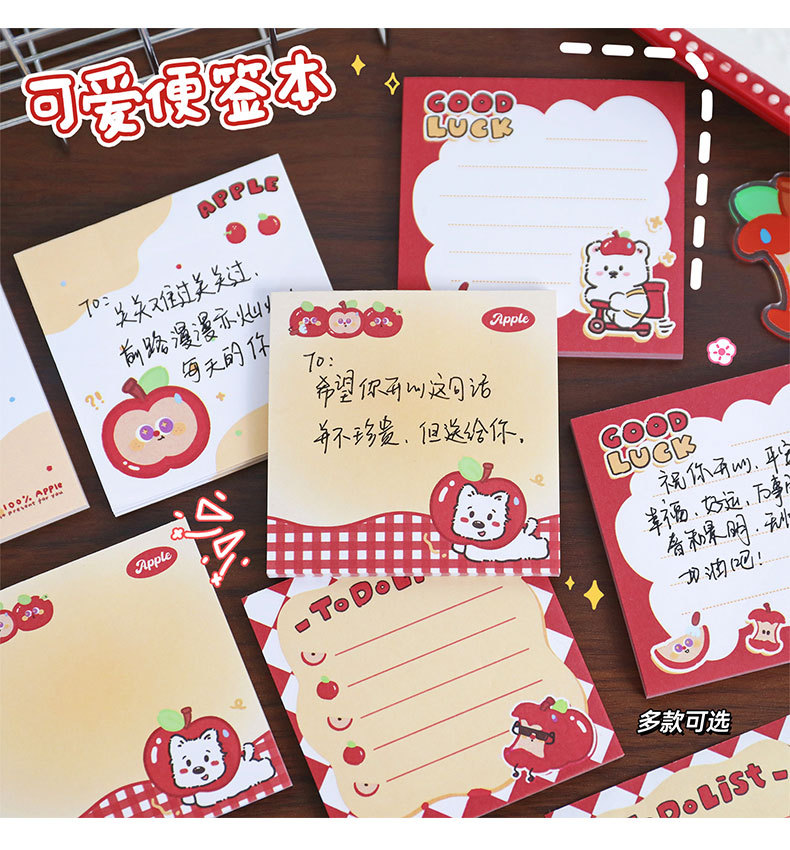 可爱便签本
GOOD
LUCK
APPLE
TO: 关关难过关关过,
前路漫漫亦灿灿
每天的你
?!
100% Apple
present for you
Apple
TO:
希望你开心这句话
并不珍贵, 但送给你。
GOOD
LUCK
祝你开心、平安
幸福、好运、万事
吧!
Apple
-ToDoList
多款可选
ToDoList-